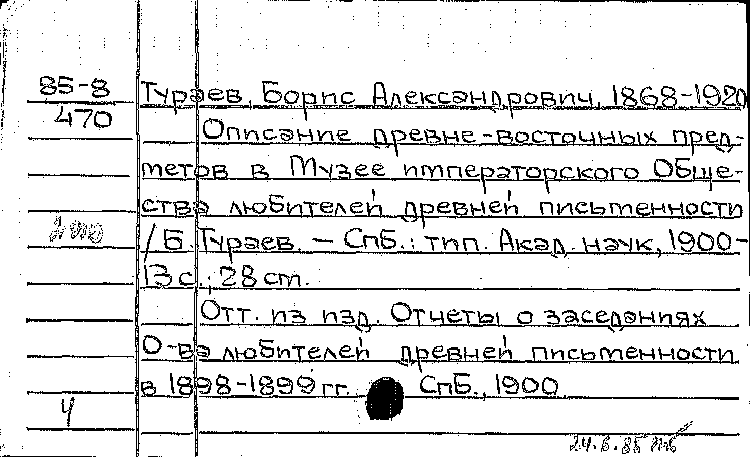 85-8
470
Тураев, Борис Александрович, 1868-1920
Описание древне-восточных пред-
метов в Музее императорского Обще-
ства любителей древней письменности
/ Б. Тураев. — Спб.: тип. Акад. наук, 1900-
13 с.; 28 см.
Отт. из изд. Отчеты о заседаниях
О-ва любителей древней письменности
в 1898-1899 гг. Спб., 1900.